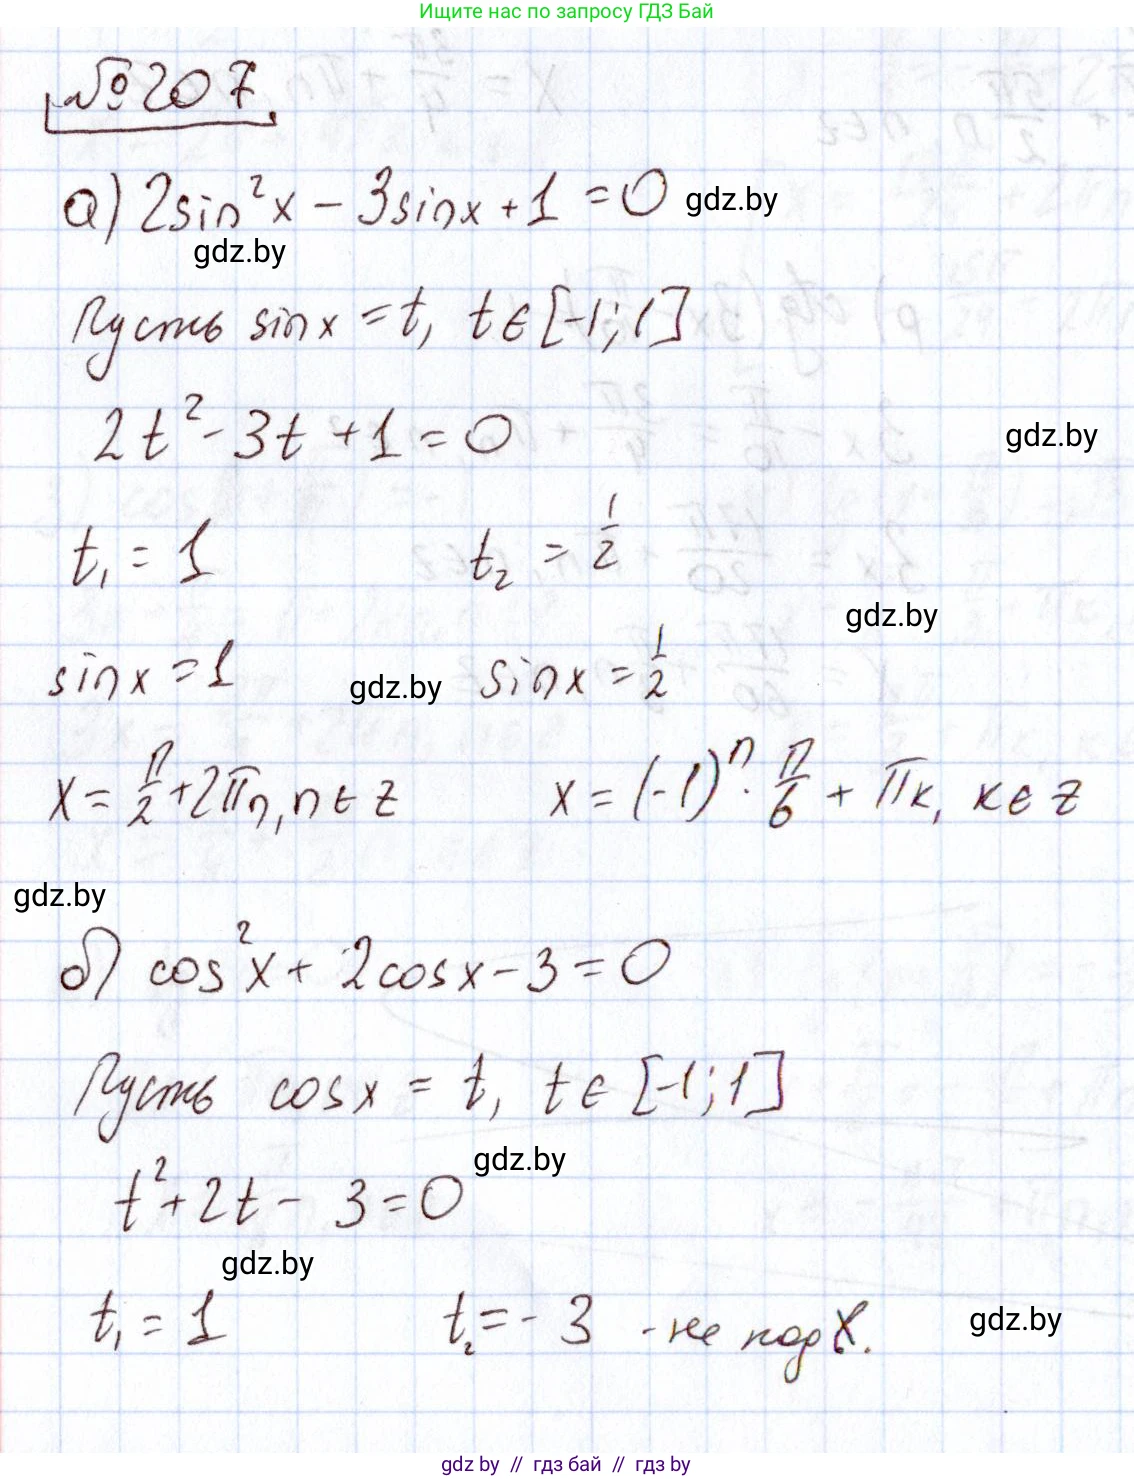 Ищите нас по запросу ГДЗ Бай
№ 207
а) 2sin²x - 3sinx + 1 = 0 gdz.by
gdz.by
Пусть sinx = t, t ∈ [-1; 1]
2t² - 3t + 1 = 0 gdz.by
t₁ = 1 t₂ = 1/2
gdz.by
sinx = 1 gdz.by sinx = 1/2
x = π/2 + 2πn, n ∈ z x = (-1)ⁿ · π/6 + πk, k ∈ z
gdz.by
б) cos²x + 2cosx - 3 = 0
Пусть cosx = t, t ∈ [-1; 1]
gdz.by
t² + 2t - 3 = 0
gdz.by
t₁ = 1 t₂ = - 3 - не подх. gdz.by
gdz by // гдз бай // гдз by